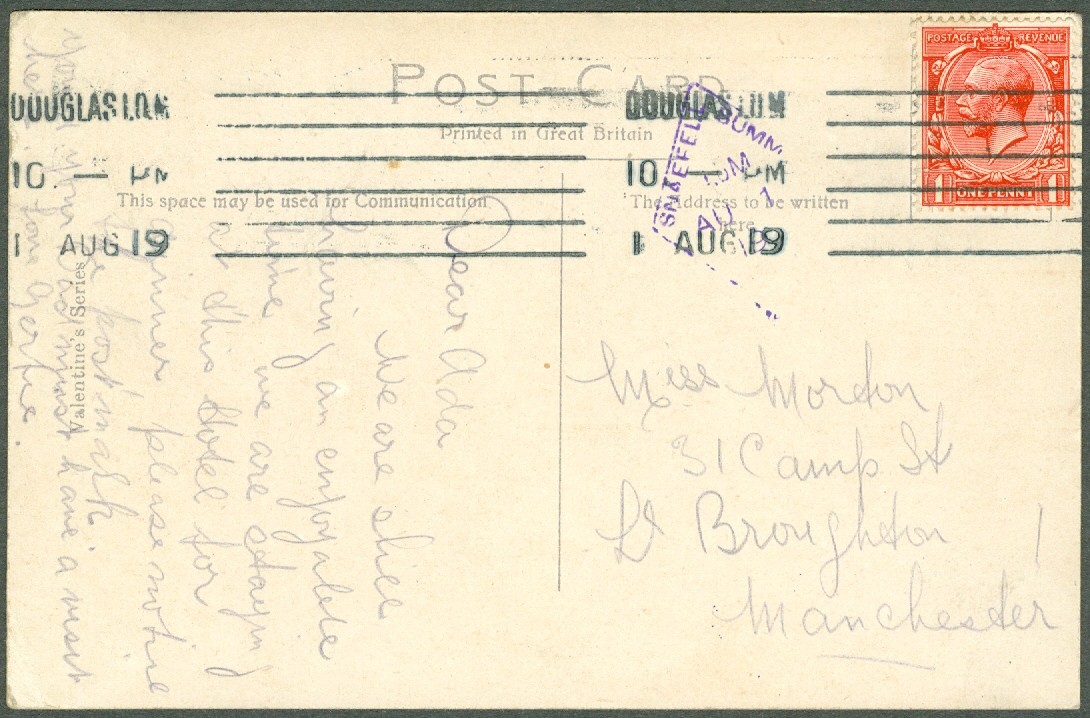 POST CARD
POSTAGE REVENUE
DOUGLAS I.O.M
DOUGLAS I.O.M
SNAEFELL SUMM
Printed in Great Britain
10 — PM
10 — PM
PM
1 ONE PENNY 1
This space may be used for Communication
The Address to be written
here
1 AUG 19
1 AUG 19
AU 1
19
Valentine's Series
Dear Ada
We are still
having an enjoyable
time we are staying
at this Hotel for
dinner please notice
the postmark
you & yours must have a visit
here. from Gertie.
Miss Morton
31 Camp St
Lr Broughton
Manchester